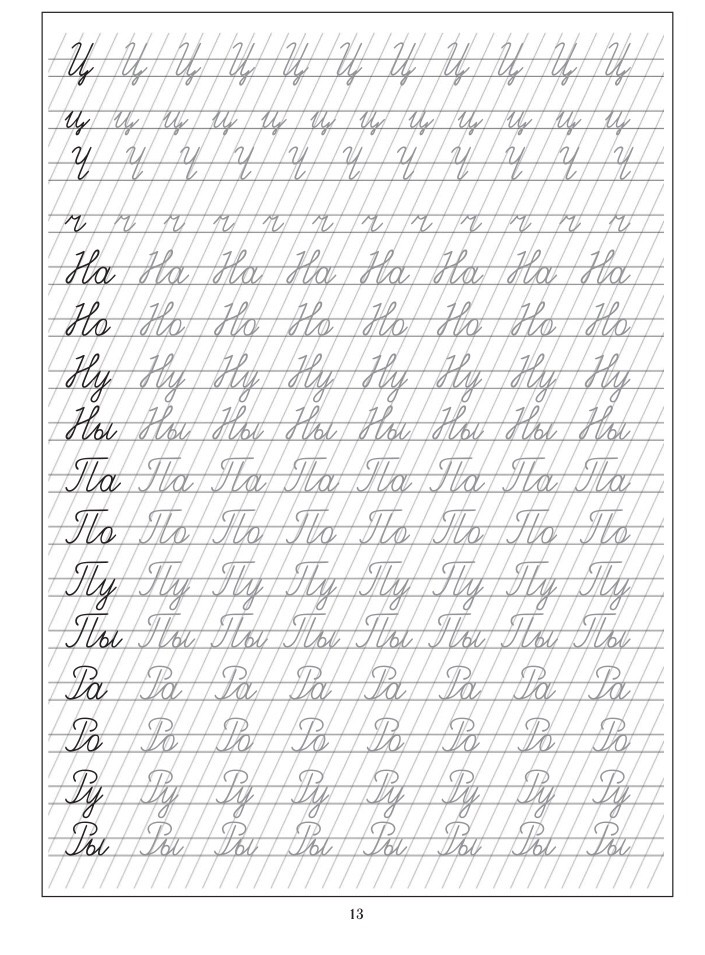 Ц Ц Ц Ц Ц Ц Ц Ц Ц Ц Ц
ц ц ц ц ц ц ц ц ц ц ц ц
Ч Ч Ч Ч Ч Ч Ч Ч Ч Ч Ч
ч ч ч ч ч ч ч ч ч ч ч ч
На На На На На На На На
Но Но Но Но Но Но Но Но
Ну Ну Ну Ну Ну Ну Ну Ну
Ны Ны Ны Ны Ны Ны Ны Ны
Па Па Па Па Па Па Па Па
По По По По По По По По
Пу Пу Пу Пу Пу Пу Пу Пу
Пы Пы Пы Пы Пы Пы Пы Пы
Ра Ра Ра Ра Ра Ра Ра Ра
Ро Ро Ро Ро Ро Ро Ро Ро
Ру Ру Ру Ру Ру Ру Ру Ру
Ры Ры Ры Ры Ры Ры Ры Ры
13